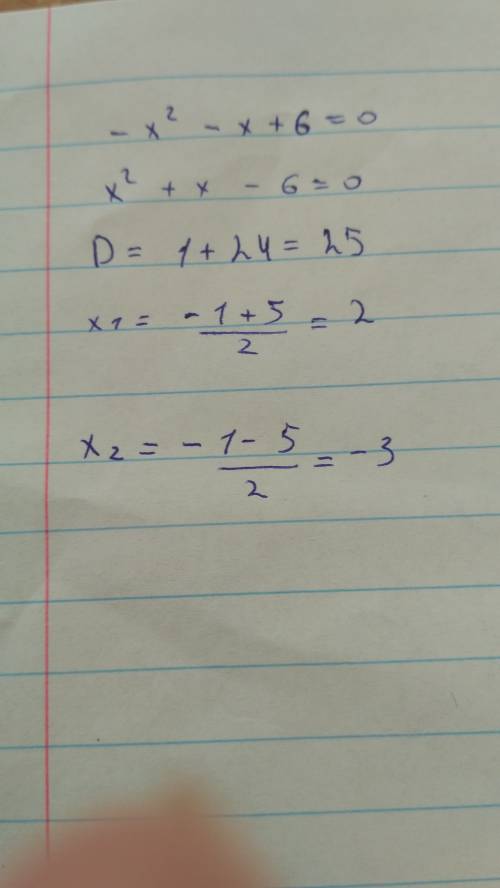 - x² - x + 6 = 0
x² + x - 6 = 0
D = 1 + 24 = 25
x1 = (-1 + 5)/2 = 2
x2 = -(1 - 5)/2 = -3